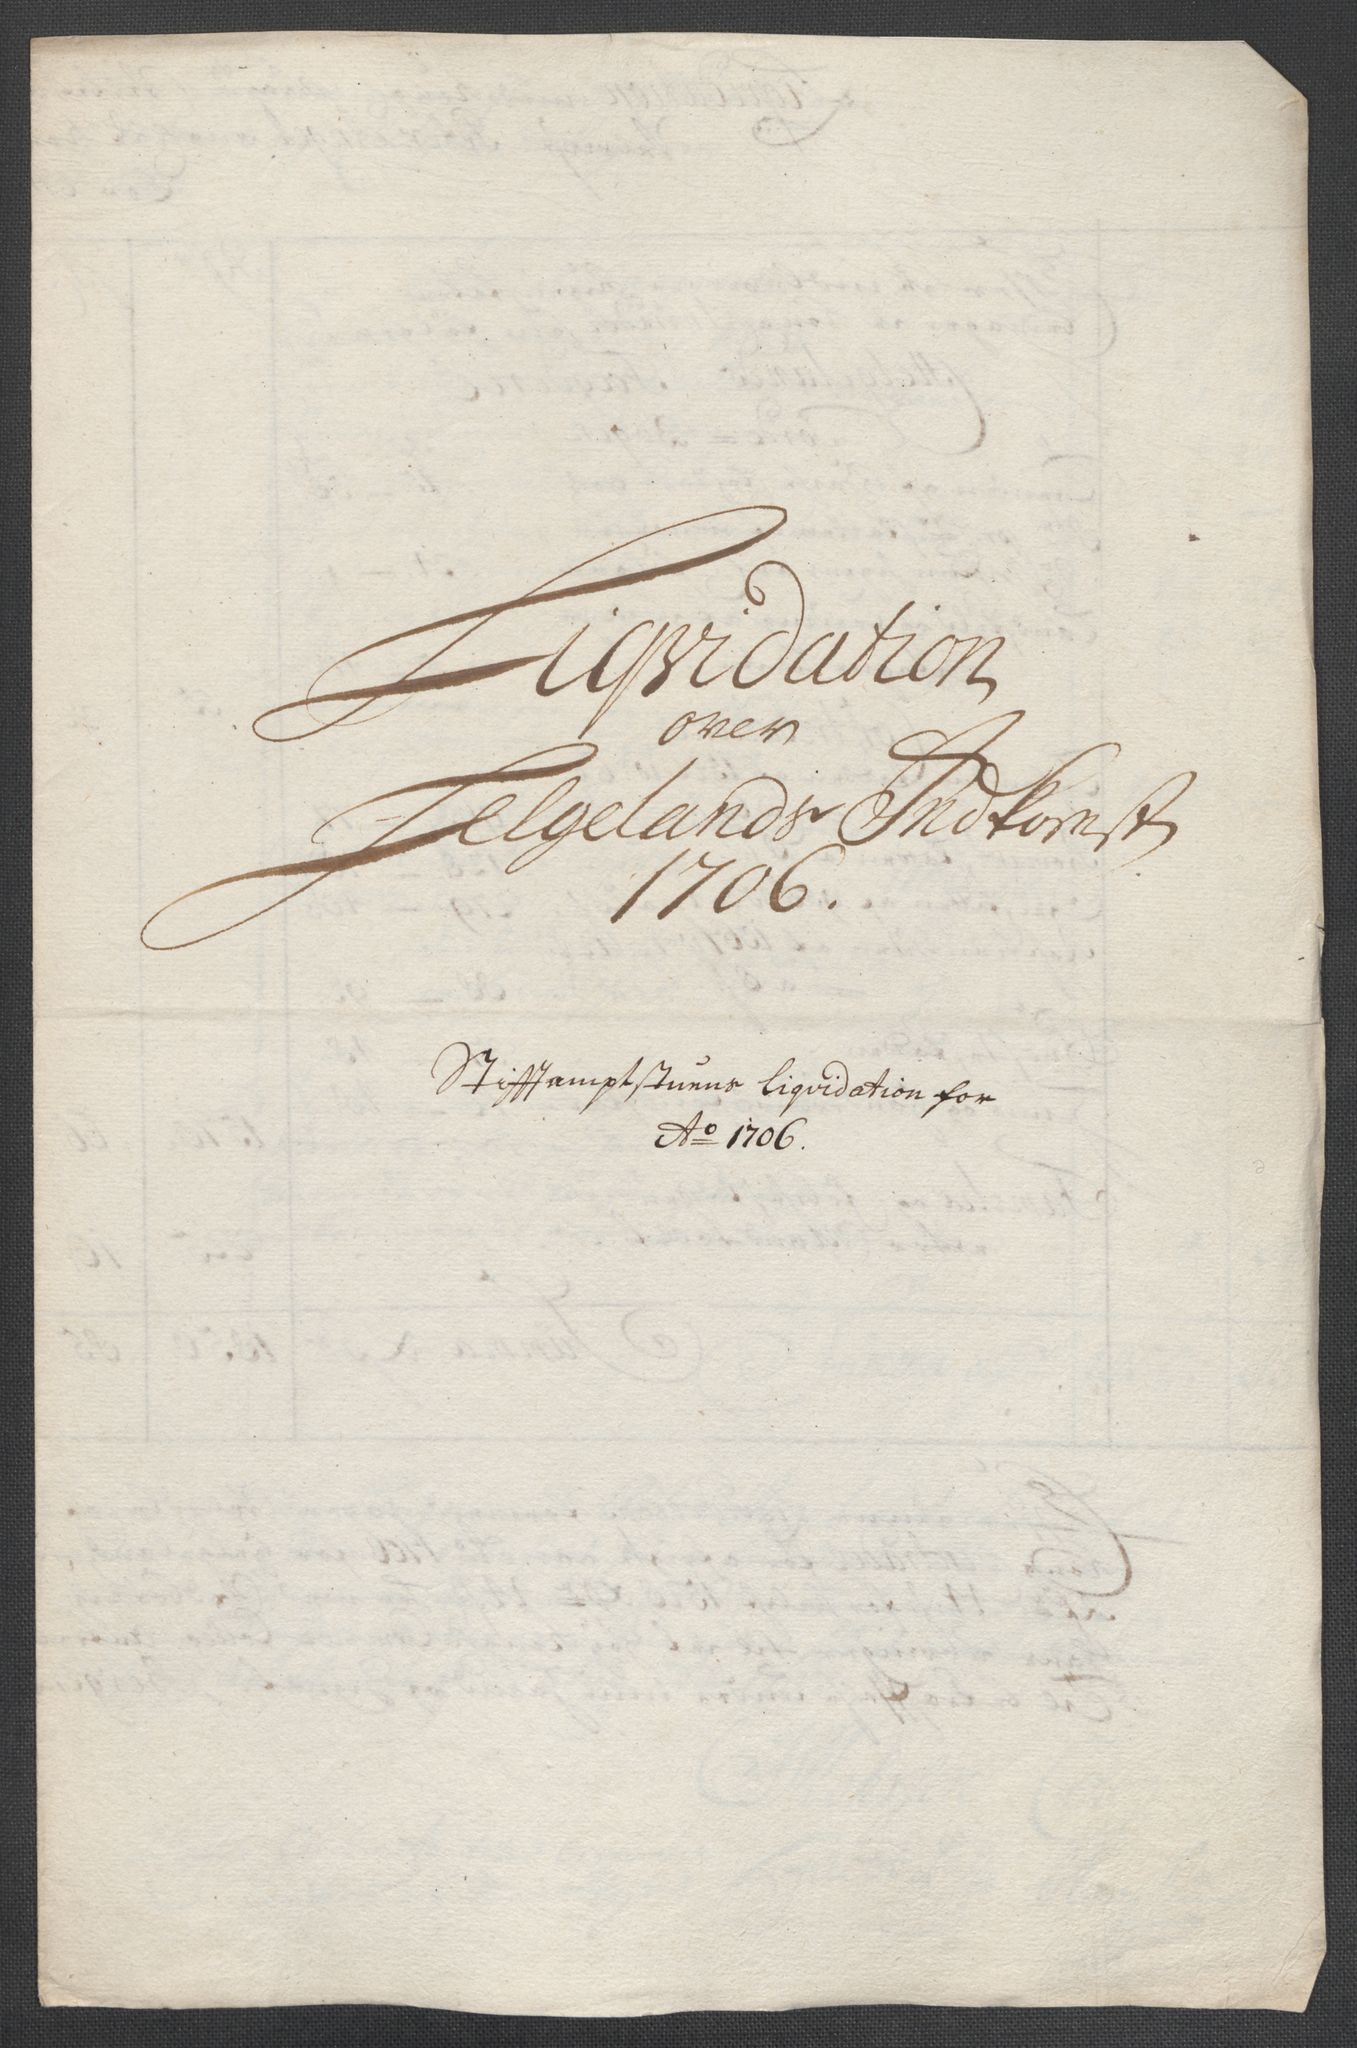 Liqvidation
over
Helgelands Indkomst
1706.
Stifftamptstuens liqvidation for
Ao 1706.